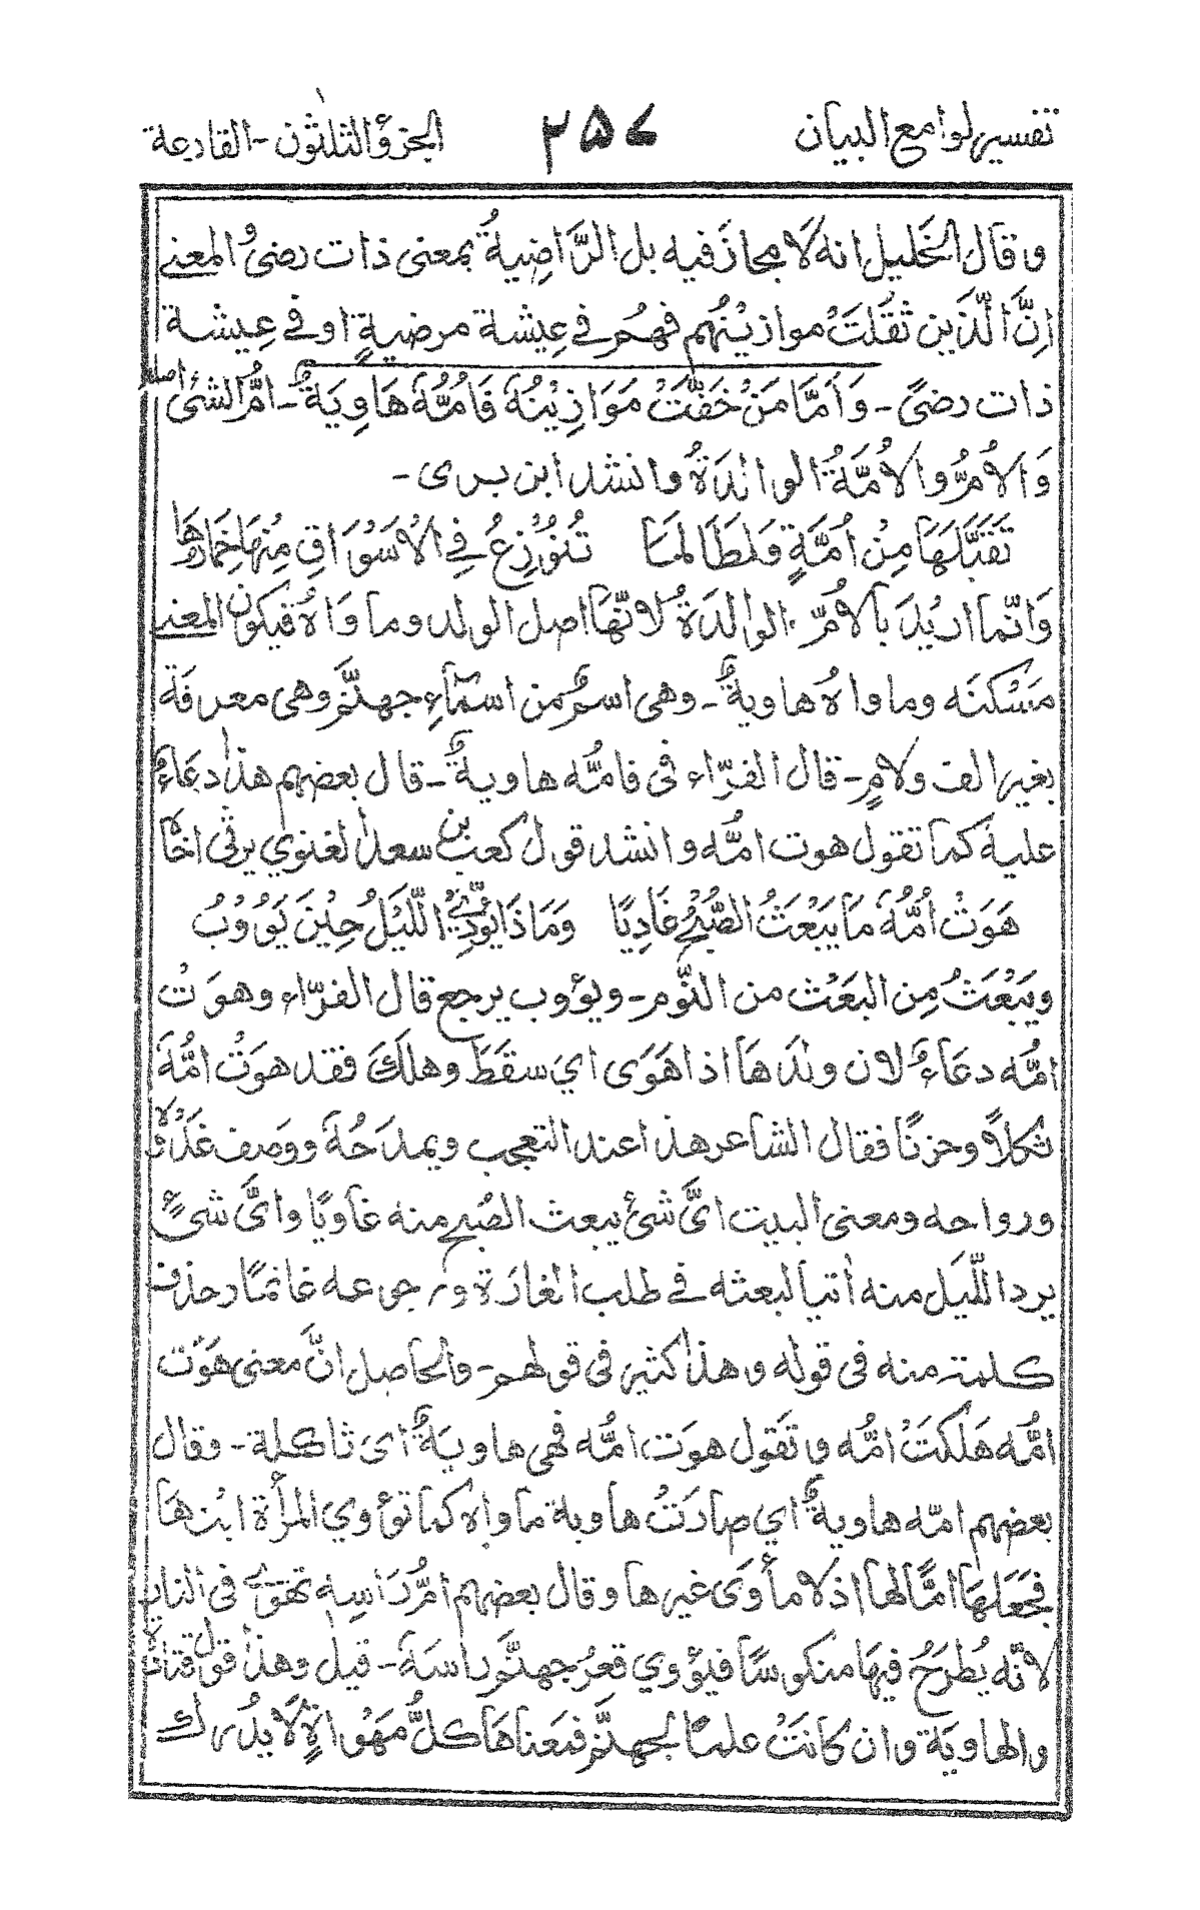 تفسير لوامع البيان ۲۵۷ الجزؤ الثلثون - القارعة
وقال الخليل انه لَا مجازَ فيه بل الرَّاضِيةُ بمعنى ذات رضىً المعنے
اِنَّ الّذَين ثقلَتْ موازينُهم فهُم في عِيشة مرضيةٍ او في عِيشة
ذات رضىً - وَاَمَّا مَنْ خَفَّتْ مَوَازِيْنُهٗ فَاُمُّهٗ هَاوِيَةٌ - امُّ الشئ اصله
وَالاُمُّ والاُمَّةُ الوالدَةُ وانشد ابن برى -
تَقَبَّلَهَا مِنْ اُمَّةٍ وَلَطَالَمَا تُنُوْزِعُ فِي الْاَسْوَاقِ مِنْهَا خِمَارُهَا
وَانّما اريْدَ بالاُمّ الوالدَةُ لانّهَا اصل الولد وماوَاهُ فيكون المعنے
مَسْكنَه وماواهُ هاويةٌ - وهى اسمٌ من اسمَآءِ جهنّم وهى معرفة
بغير الف ولامٍ - قال الفرّاء فى فامُّه هاويةٌ - قال بعضهم هذا دعَاءٌ
عليهِ كما تقول هوت امُّه وانشد قول كعب بن سعد الغنوي يرثى اخاهُ
هَوَتْ اُمُّهٗ مَا يَبْعَثُ الصُّبْحُ غَادِيًا وَمَاذَا يُؤدِّيْ اللَّيْلُ حِيْنَ يَؤُوْبُ
ويَبْعَثُ مِن البَعْث من النَّوم - ويؤوب يرجع قال الفرّاء وهوَتْ
امُّه دعَاءٌ لان ولدَهَا اذا هَوَى اي سقَطَ وهلَكَ فقد هوَتْ امُّهٗ
ثكلاً وحزنًا فقال الشاعر هذا عند التعجب ويمدَحُهٗ ووصف غَدْوَهٗ
ورواحه ومعنى البيت اىَّ شئ يبعث الصُبح منه غاويًا واىَّ شئٍ
يردا للّيَل منه اتيا لبعثه في طلب الغارَة ورجوعه غانمًا وحذف
كلمة منه فى قوله وهذا كثير فى قولهم - والحاصل انَّ معنى هَوَت
امُّه هَلَكَتْ امُّه وتقول هوَت امُّه فهى هاويَةٌ اى ثاكلة - وقال
بعضهم امّه هاويةٌ اي صارَتْ هاوية ماواه كما تؤوي المرأة ابنهَا
فجعَلهَا امًّا لها اذلا ماْوَى غيرها وقال بعضهم امُّ رَاسِه تهوى في النار
لانّه يُطرَحُ فيهَا منكوسًا فيؤوي قعرُ جهنّم راسَهٗ - قيل وهذا قول قتادة
والهاويَة وان كانَتْ علمًا لجهنّم فمَعناهَا كلُّ مَهْوا لَا يُدْرك